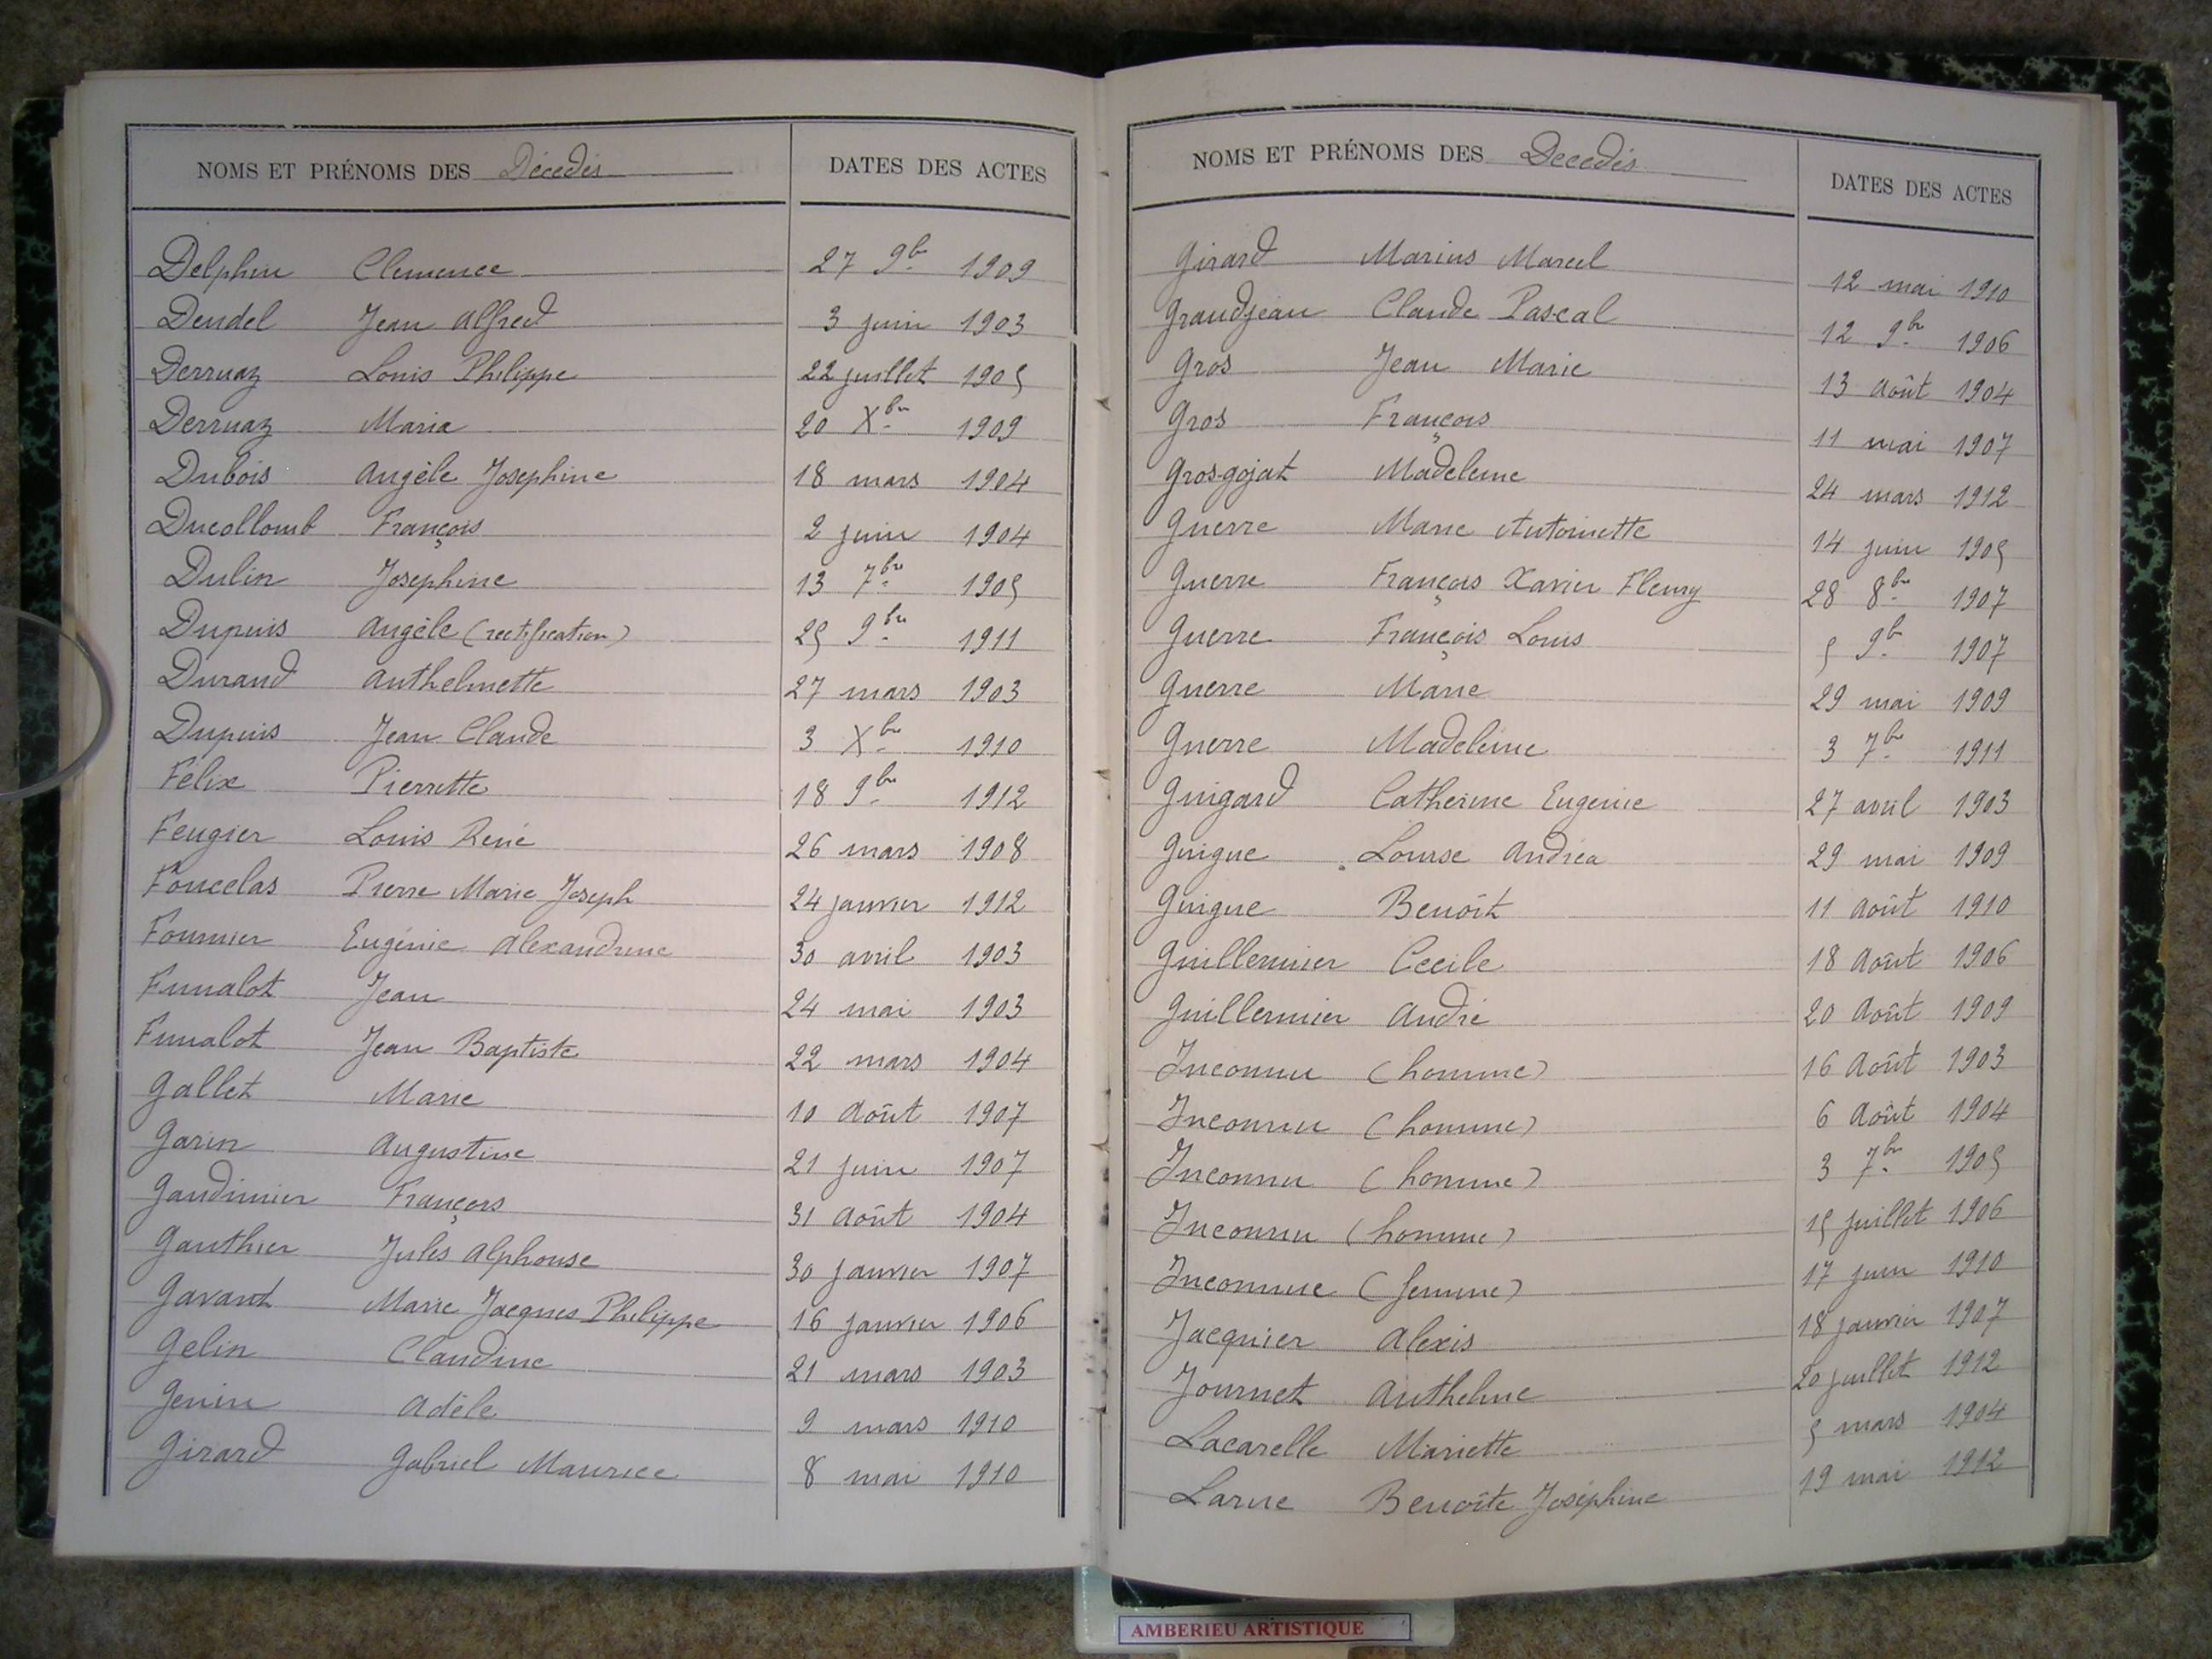 NOMS ET PRÉNOMS DES Décedés DATES DES ACTES
Delphin Clemence 27 9bre 1909
Dendel Jean Alfred 3 juin 1903
Derruaz Louis Philippe 22 juillet 1905
Derruaz Maria 20 Xbre 1909
Dubois Angèle Josephine 18 mars 1904
Ducollomb François 2 juin 1904
Dulin Josephine 13 7bre 1905
Dupuis Angèle (rectification) 25 9bre 1911
Durand Anthelmette 27 mars 1903
Dupuis Jean Claude 3 Xbre 1910
Félix Pierrette 18 9bre 1912
Feugier Louis René 26 mars 1908
Foucelas Pierre Marie Joseph 24 janvier 1912
Fournier Eugénie Alexandrine 30 avril 1903
Funalot Jean 24 mai 1903
Funalot Jean Baptiste 22 mars 1904
Gallet Marie 10 Août 1907
Garin Augustine 21 juin 1907
Gaudinier François 31 Août 1904
Gauthier Jules Alphonse 30 janvier 1907
Gavant Marie Jacques Philippe 16 janvier 1906
Gelin Claudine 21 mars 1903
Genin Adèle 9 mars 1910
Girard Gabriel Maurice 8 mai 1910
NOMS ET PRÉNOMS DES Decedés DATES DES ACTES
Girard Marius Marcel 12 mai 1910
Grandjean Claude Pascal 12 9bre 1906
Gros Jean Marie 13 Août 1904
Gros François 11 mai 1907
Gros-gojat Madeleine 24 mars 1912
Guerre Marie Antoinette 14 juin 1905
Guerre François Xavier Fleury 28 8bre 1907
Guerre François Louis 5 9bre 1907
Guerre Marie 29 mai 1909
Guerre Madeleine 3 7bre 1911
Guigard Catherine Eugenie 27 avril 1903
Guigue Louise Andréa 29 mai 1909
Guigue Benoît 11 Août 1910
Guillermier Cecile 18 Août 1906
Guillermier André 20 Août 1909
Inconnu (homme) 16 Août 1903
Inconnu (homme) 6 Août 1904
Inconnu (homme) 3 7bre 1905
Inconnu (homme) 15 juillet 1906
Inconnue (femme) 17 juin 1910
Jacquier Alexis 18 janvier 1907
Journet Anthelme 20 juillet 1912
Lacarelle Mariette 5 mars 1904
Larue Benoîte Joséphine 19 mai 1912
AMBERIEU ARTISTIQUE